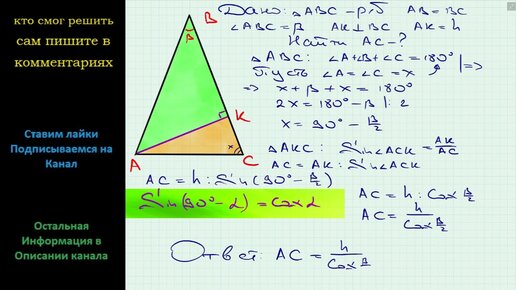 кто смог решить
сам пишите в
комментариях
Ставим лайки
Подписываемся на
Канал
Остальная
Информация в
Описании канала
B
β
K
A
x
C
Дано: △ABC – р/б AB = BC
∠ABC = β AK ⊥ BC AK = h
Найти AC – ?
△ABC: ∠A + ∠B + ∠C = 180°
Пусть ∠A = ∠C = x |=>
=> x + β + x = 180°
2x = 180° – β |: 2
x = 90° – β/2
△AKC: Sin∠ACK = AK/AC
AC = AK : Sin∠ACK
AC = h : Sin(90° – β/2)
Sin(90° – α) = Cos α
AC = h : Cos β/2
AC = h/Cos β/2
Ответ: AC = h/Cos β/2